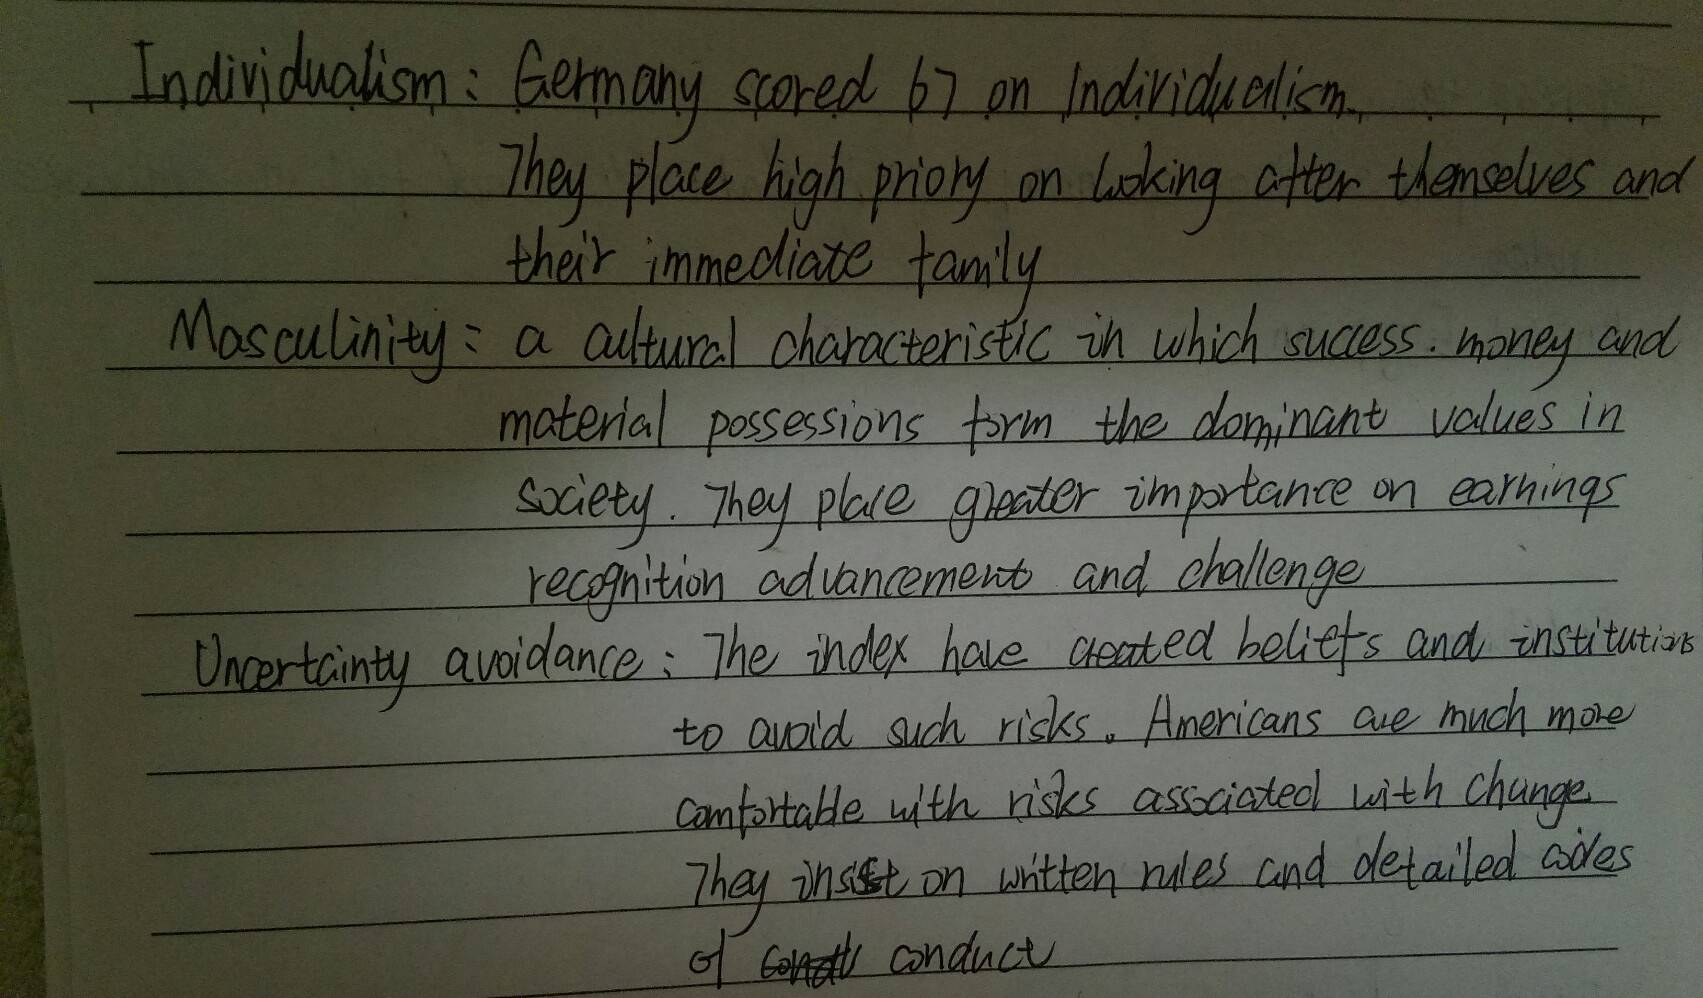 Individualism: Germany scored 67 on Individualism.
They place high priory on looking after themselves and
their immediate family
Masculinity: a cultural characteristic in which success. money and
material possessions form the dominant values in
society. They place greater importance on earnings
recognition advancement and challenge
Uncertainty avoidance: The index have created beliefs and institutions
to avoid such risks. Americans are much more
comfortable with risks associated with change.
They insist on written rules and detailed codes
of conduct